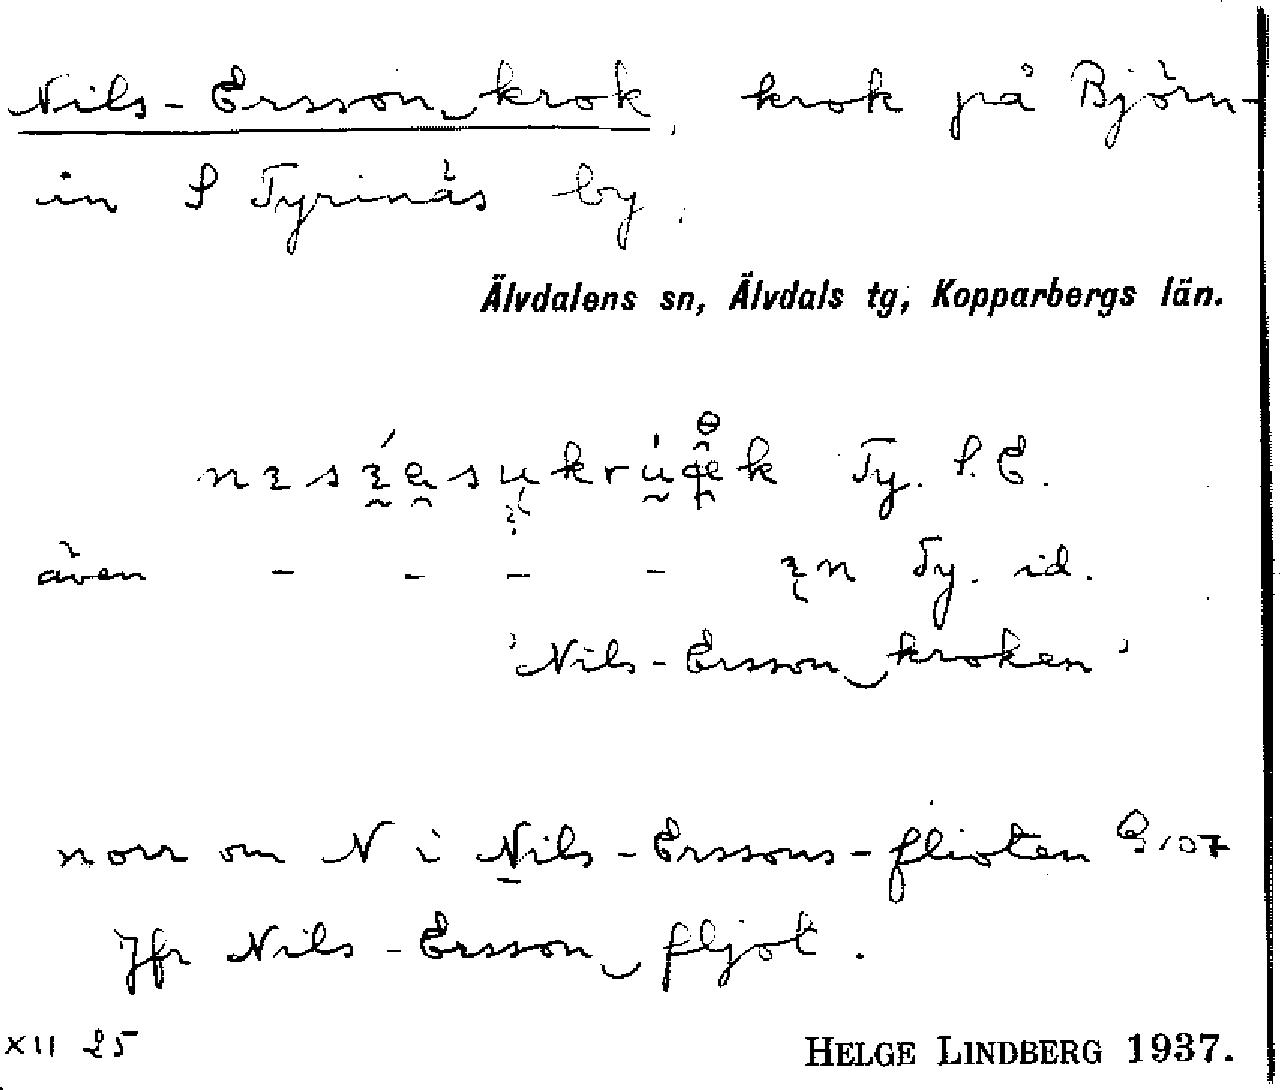 Nils-Ersson‿krok, krok på Björn-
in S Tyrinäs by.
Älvdalens sn, Älvdals tg, Kopparbergs län.
Ty. S. E.
även - - - - ɪn Ty. id.
'Nils-Ersson‿kroken'
norr om N i Nils-Erssons-flioten G 107
Jfr Nils-Ersson‿fljot.
XII 25
HELGE LINDBERG 1937.